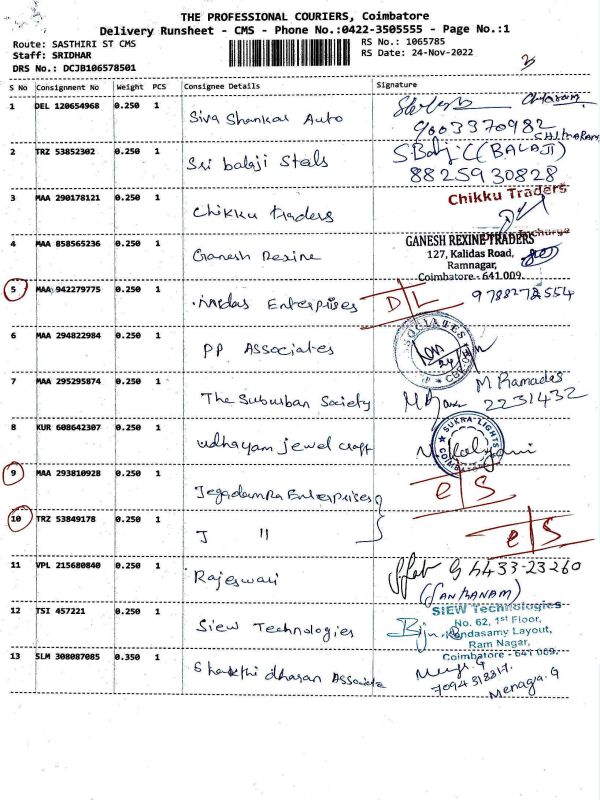 THE PROFESSIONAL COURIERS, Coimbatore
Delivery Runsheet - CMS - Phone No.:0422-3505555 - Page No.:1
Route: SASTHIRI ST CMS
RS No.: 1065785
Staff: SRIDHAR
RS Date: 24-Nov-2022
DRS No.: DCJB106578501
S No Consignment No Weight PCS Consignee Details Signature
1 DEL 120654968 0.250 1 Siva Shankar Auto
9003370982
2 TRZ 53852302 0.250 1 Sri balaji Stals S Balaji (BALAJI)
8825930828
3 MAA 290178121 0.250 1 Chikku traders Chikku Traders
4 MAA 858565236 0.250 1 Ganesh Rexine GANESH REXINE TRADERS
127, Kalidas Road,
Ramnagar,
Coimbatore - 641 009.
5 MAA 942279775 0.250 1 Midas Enterprises D/L
6 MAA 294822984 0.250 1 PP Associates
7 MAA 295295874 0.250 1 The Suburban Society M Ramadas
2231432
8 KUR 608642307 0.250 1 udhayam jewel craft SUKRA LIGHTS
9 MAA 293810928 0.250 1 Jegadamba Enterprises e/S
10 TRZ 53849178 0.250 1 J " e/S
11 VPL 215680840 0.250 1 Rajeswari
12 TSI 457221 0.250 1 Siew Technologies SIEW Technologies
No. 62, 1st Floor,
Kandasamy Layout,
Ram Nagar,
Coimbatore - 641 009.
13 SLM 308087085 0.350 1 Shakthi dharan Associate
Menaga. G